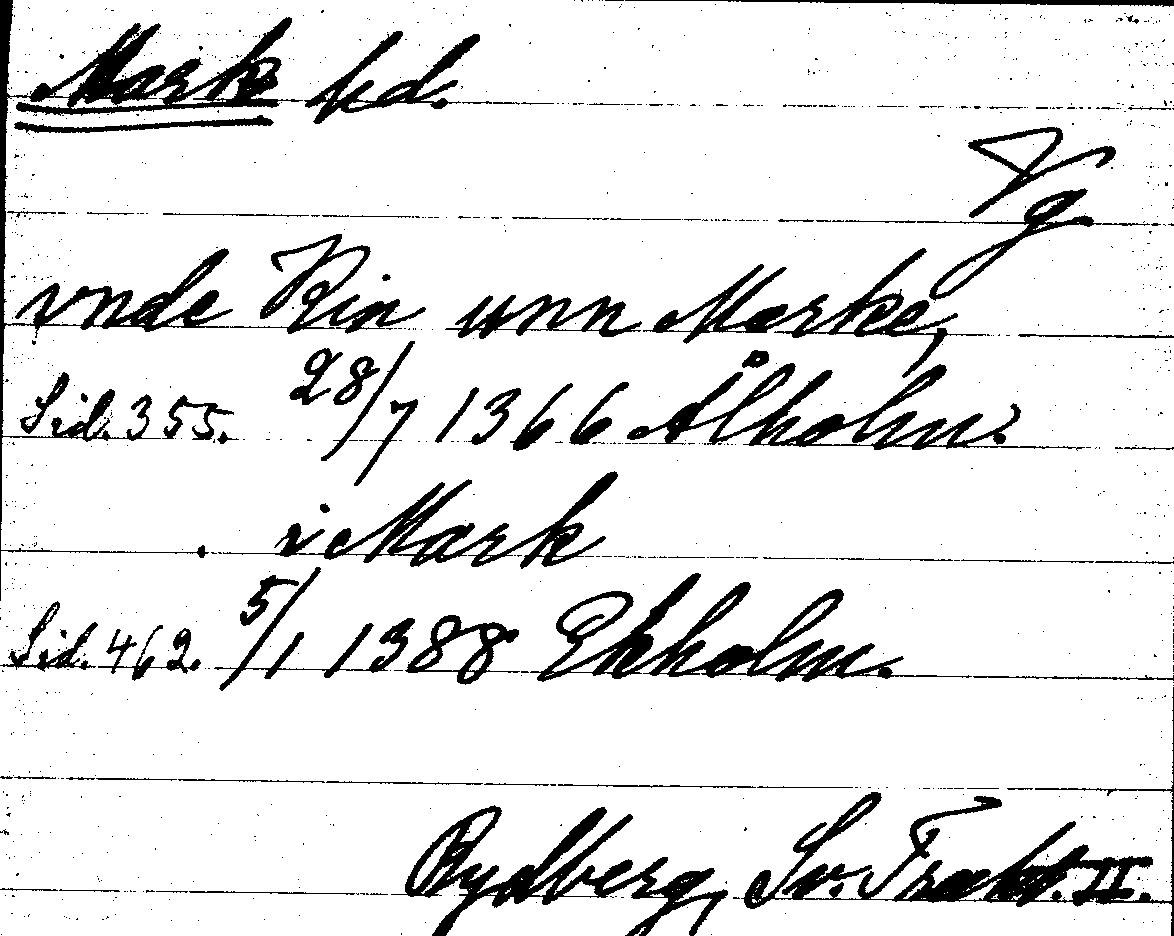 Marks hd.
Vg
vnde Kin unn Marke,
Sid. 355. 28/7 1366 Ålholm.
i Mark
Sid. 462. 5/1 1388 Ekholm.
Rydberg, Sv. Trakt. II.